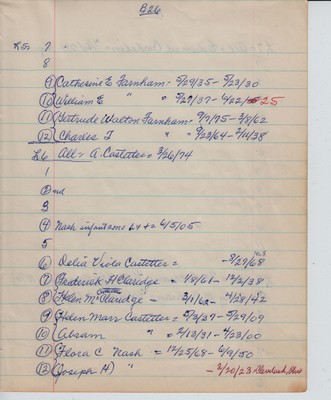 B26
L5= 7
8
⑨ Catherine E Farnham = 9/29/35 - 9/23/30
⑩ William E " " = 9/29/37 - 6/22/25
⑪ Gertrude Walton Farnham = 9/7/75 - 3/8/62
⑫ Charles F " = 9/23/64 - 2/14/38
L6 All = A. Castetter = 3/26/74
1
② nd
3
④ Nash infant sons = 6/5/05
5
⑥ Delia Viola Castetter = - 8/27/68
⑦ Frederick H Claridge = 1/8/61 - 12/2/38
⑧ Helen M Claridge - 3/1/62 - 4/28/42
⑨ Helen Marr Castetter = 5/3/37 - 5/29/09
⑩ Abram " = 2/13/31 - 4/23/00
⑪ Flora C Nash = 12/25/68 - 6/9/50
⑫ Joseph H) " - 2/20/23 Cleveland, Ohio